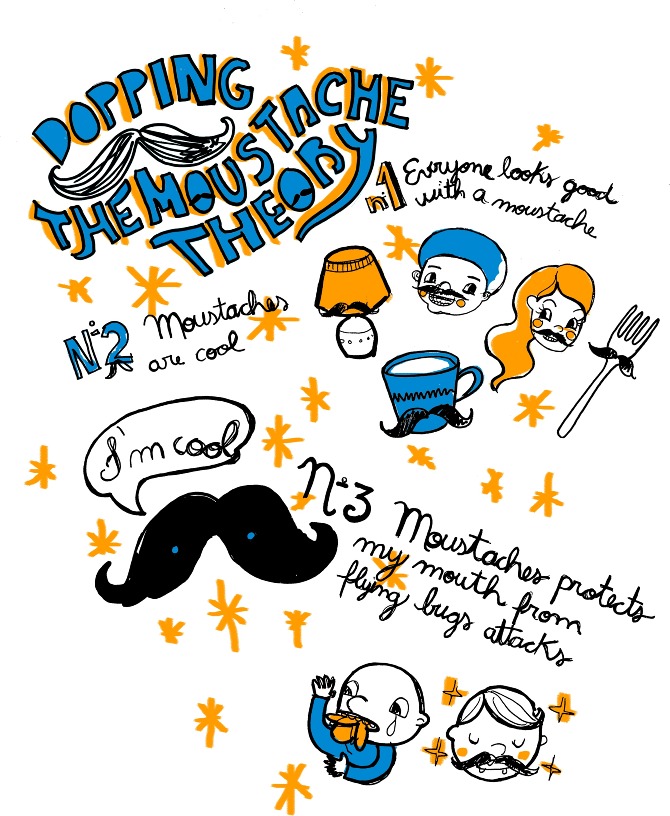 DOPPING
THE MOUSTACHE
THEORY
nº1 Everyone looks good
with a moustache
Nº2 Moustaches
are cool
I'm cool
Nº3 Moustaches protects
my mouth from
flying bugs attacks